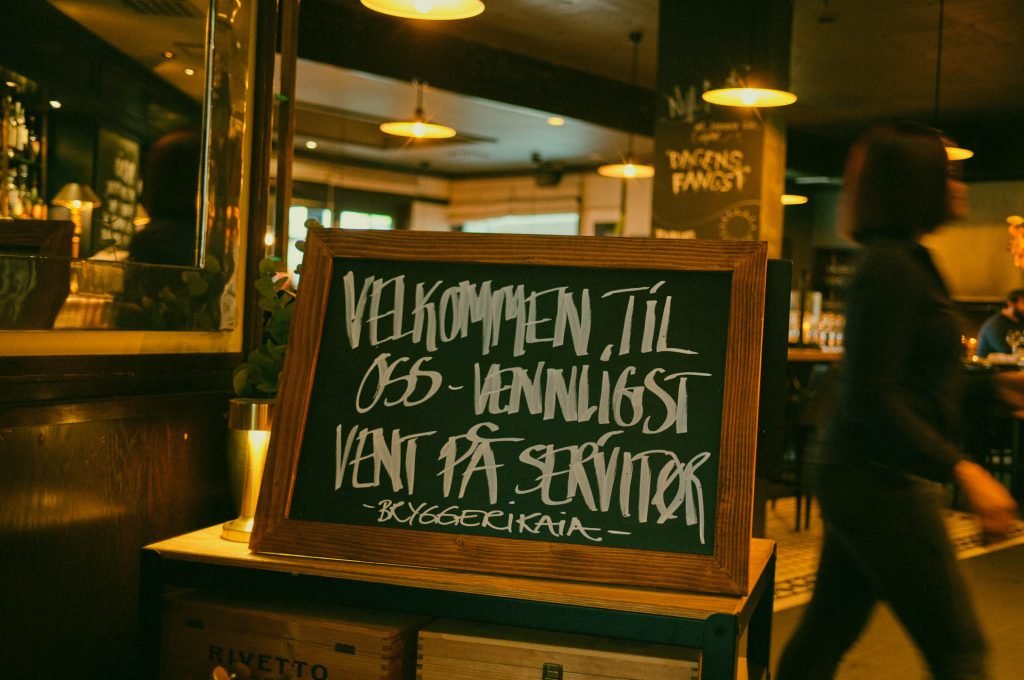 DAGENS
FANGST
VELKOMMEN TIL
OSS - VENNLIGST
VENT PÅ SERVITØR
- BRYGGERIKAIA -
RIVETTO